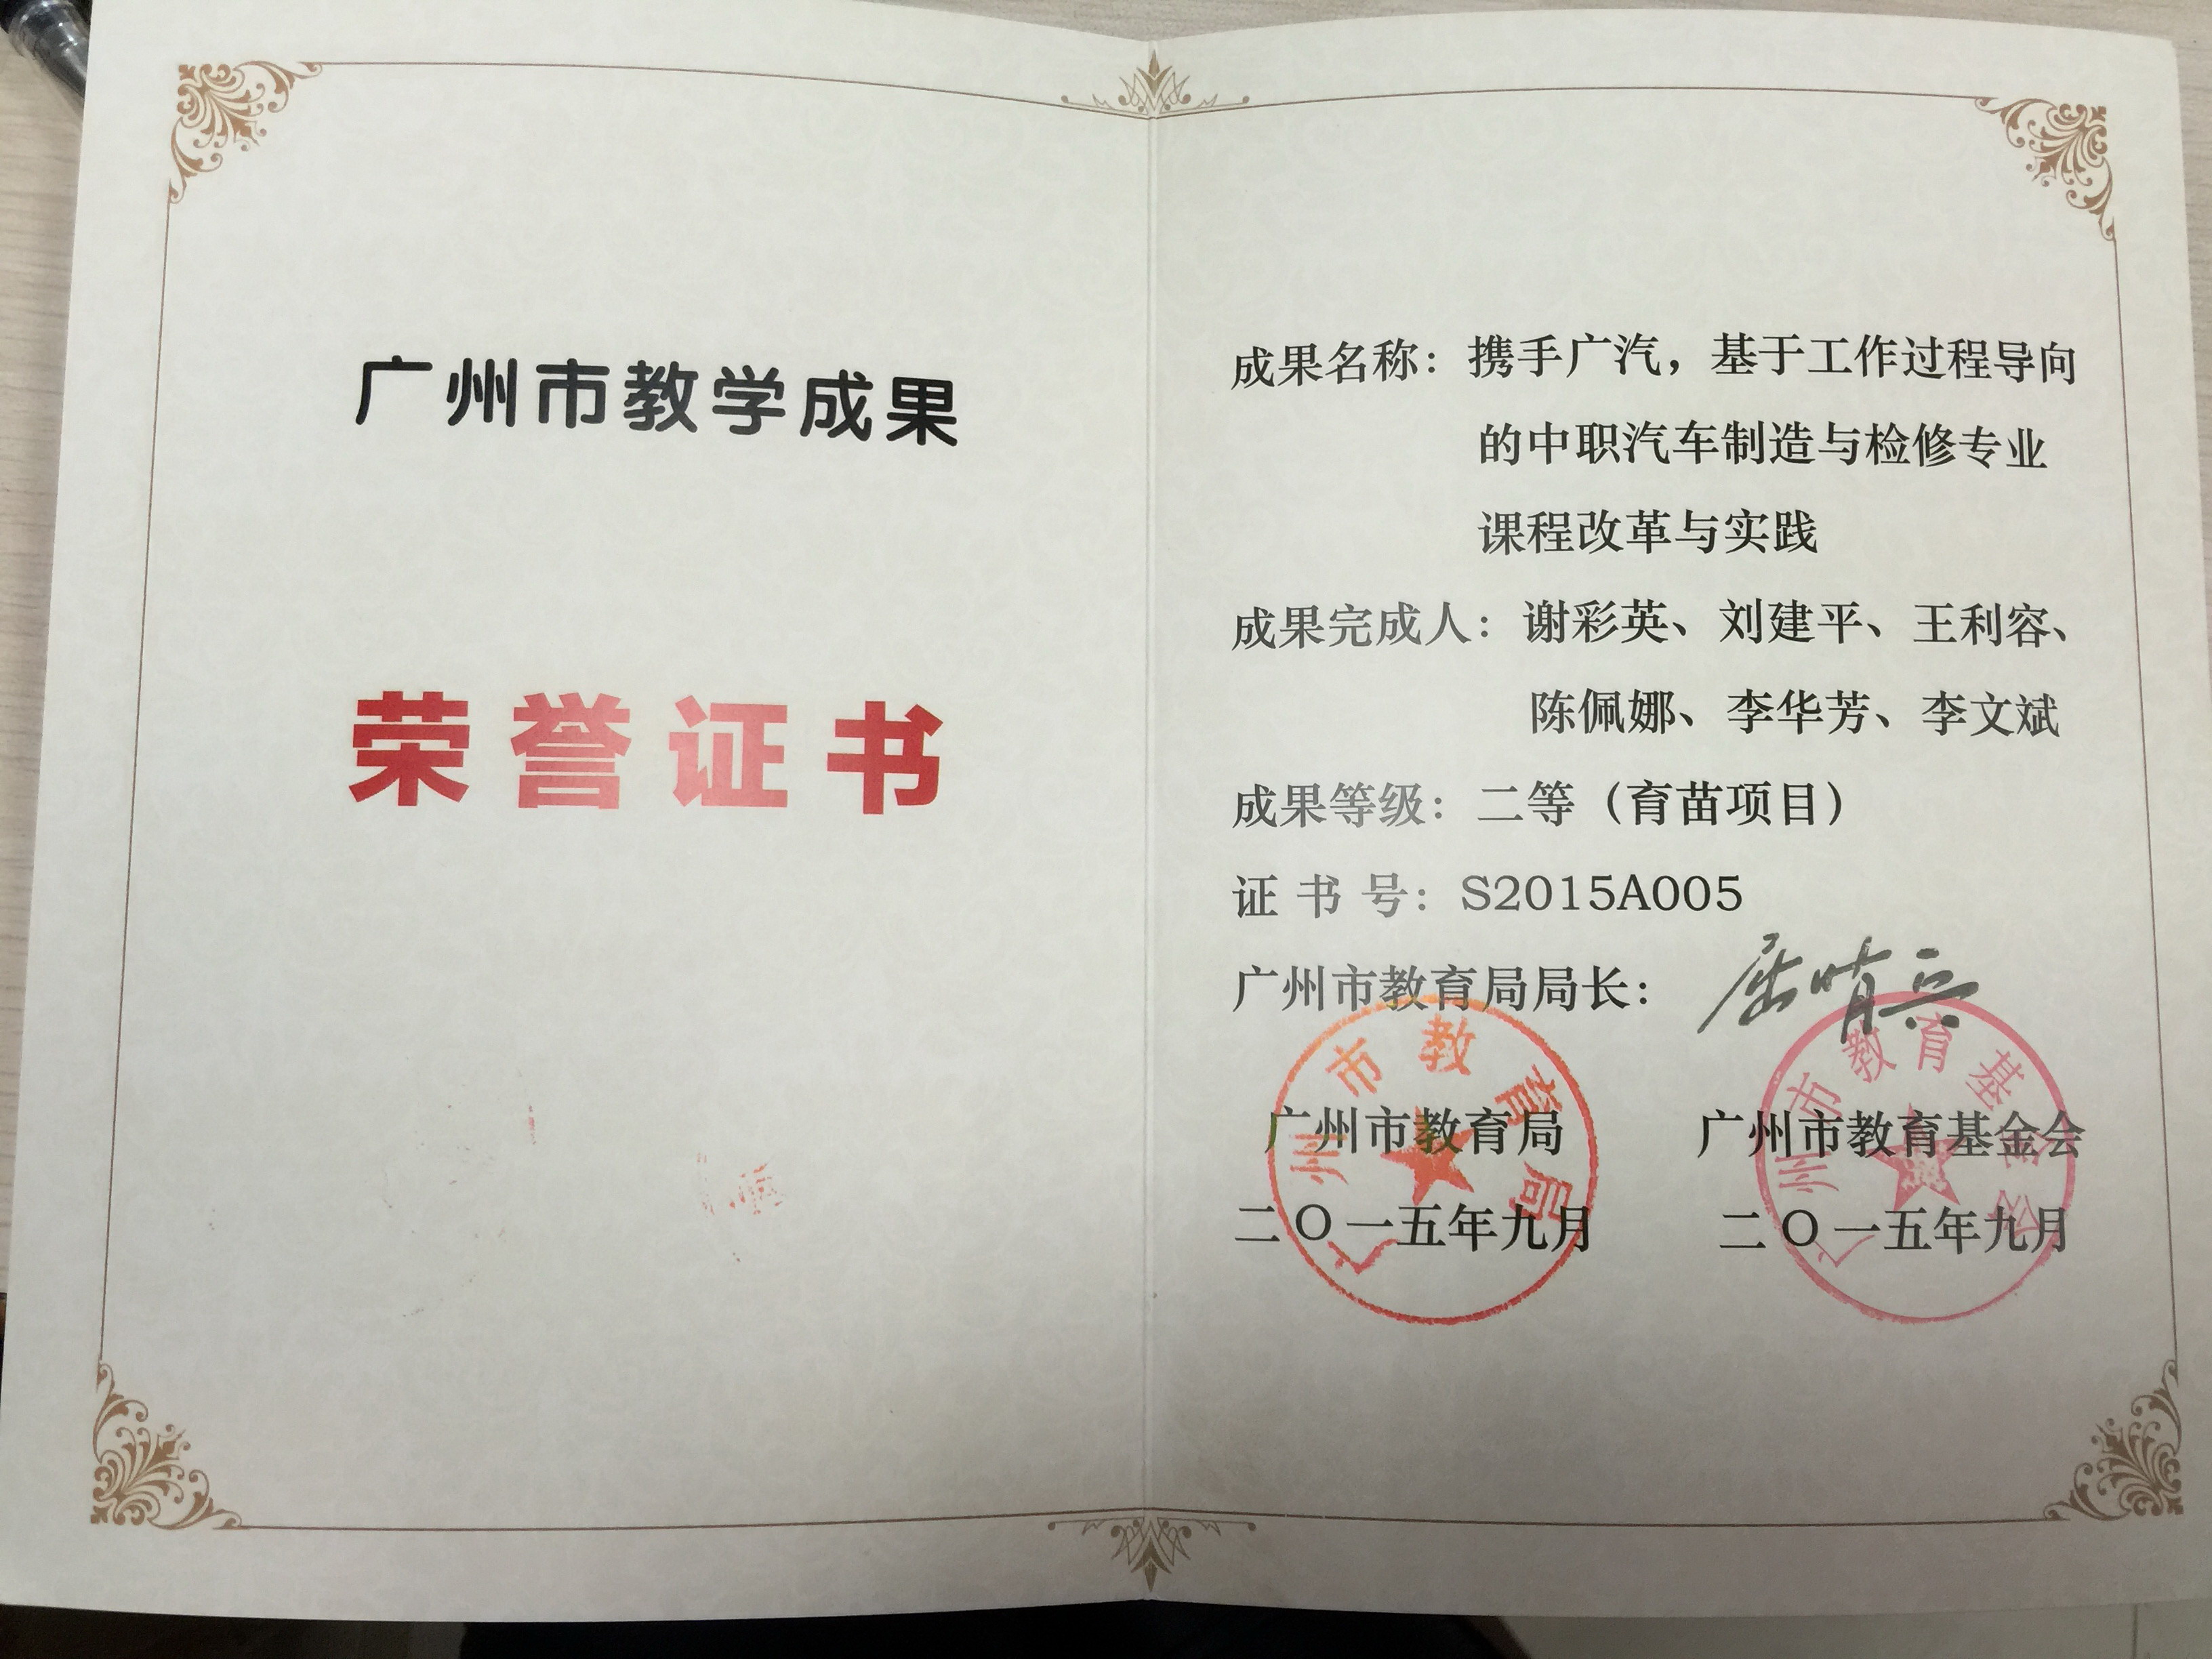 广州市教学成果
荣誉证书
成果名称：携手广汽，基于工作过程导向
的中职汽车制造与检修专业
课程改革与实践
成果完成人：谢彩英、刘建平、王利容、
陈佩娜、李华芳、李文斌
成果等级：二等（育苗项目）
证书号：S2015A005
广州市教育局局长：屈哨兵
广州市教育局
广州市教育基金会
广州市教育局 广州市教育基金会
二〇一五年九月 二〇一五年九月